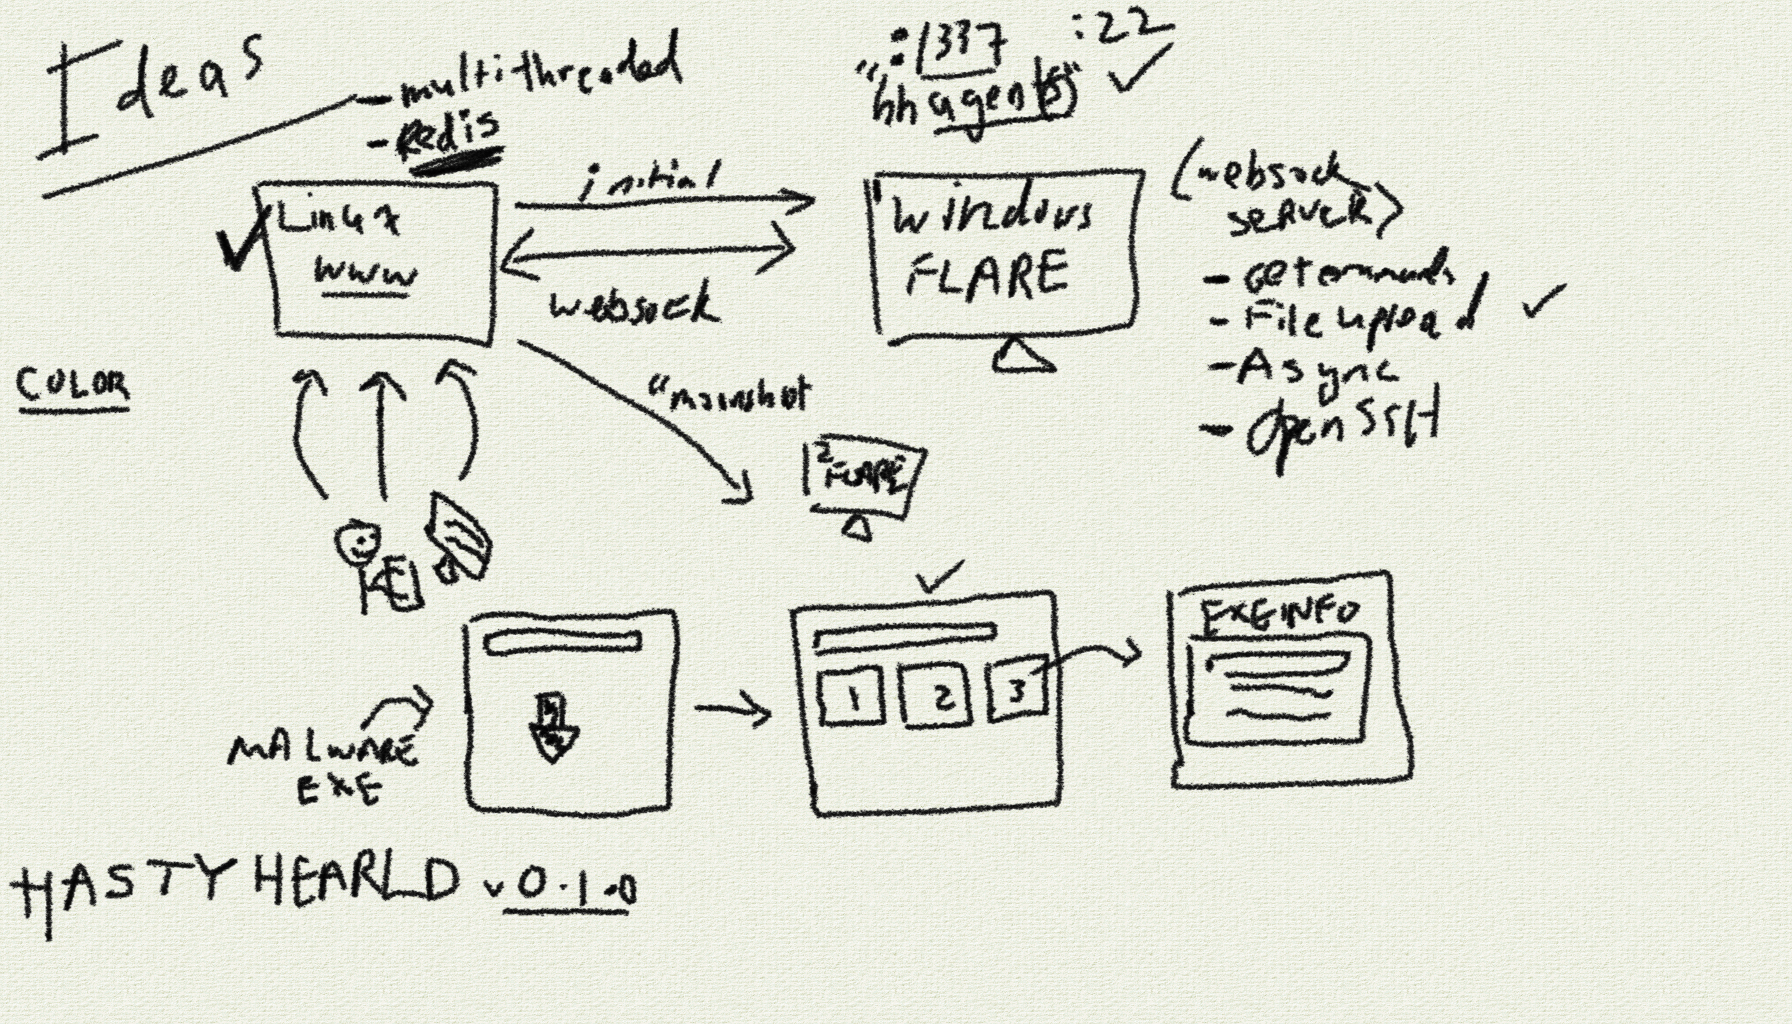 Ideas
- multithreaded
- Redis
:1337
:22
"hh agent(s)"
Linux
www
initial
websock
"Windows
FLARE
(websock
server)
- Get commands
- File upload
- Async
- OpenSSH
COLOR
"moonshot
2
FLARE
MALWARE
EXE
1
2
3
EXEINFO
HASTY HEARLD v0.1.0